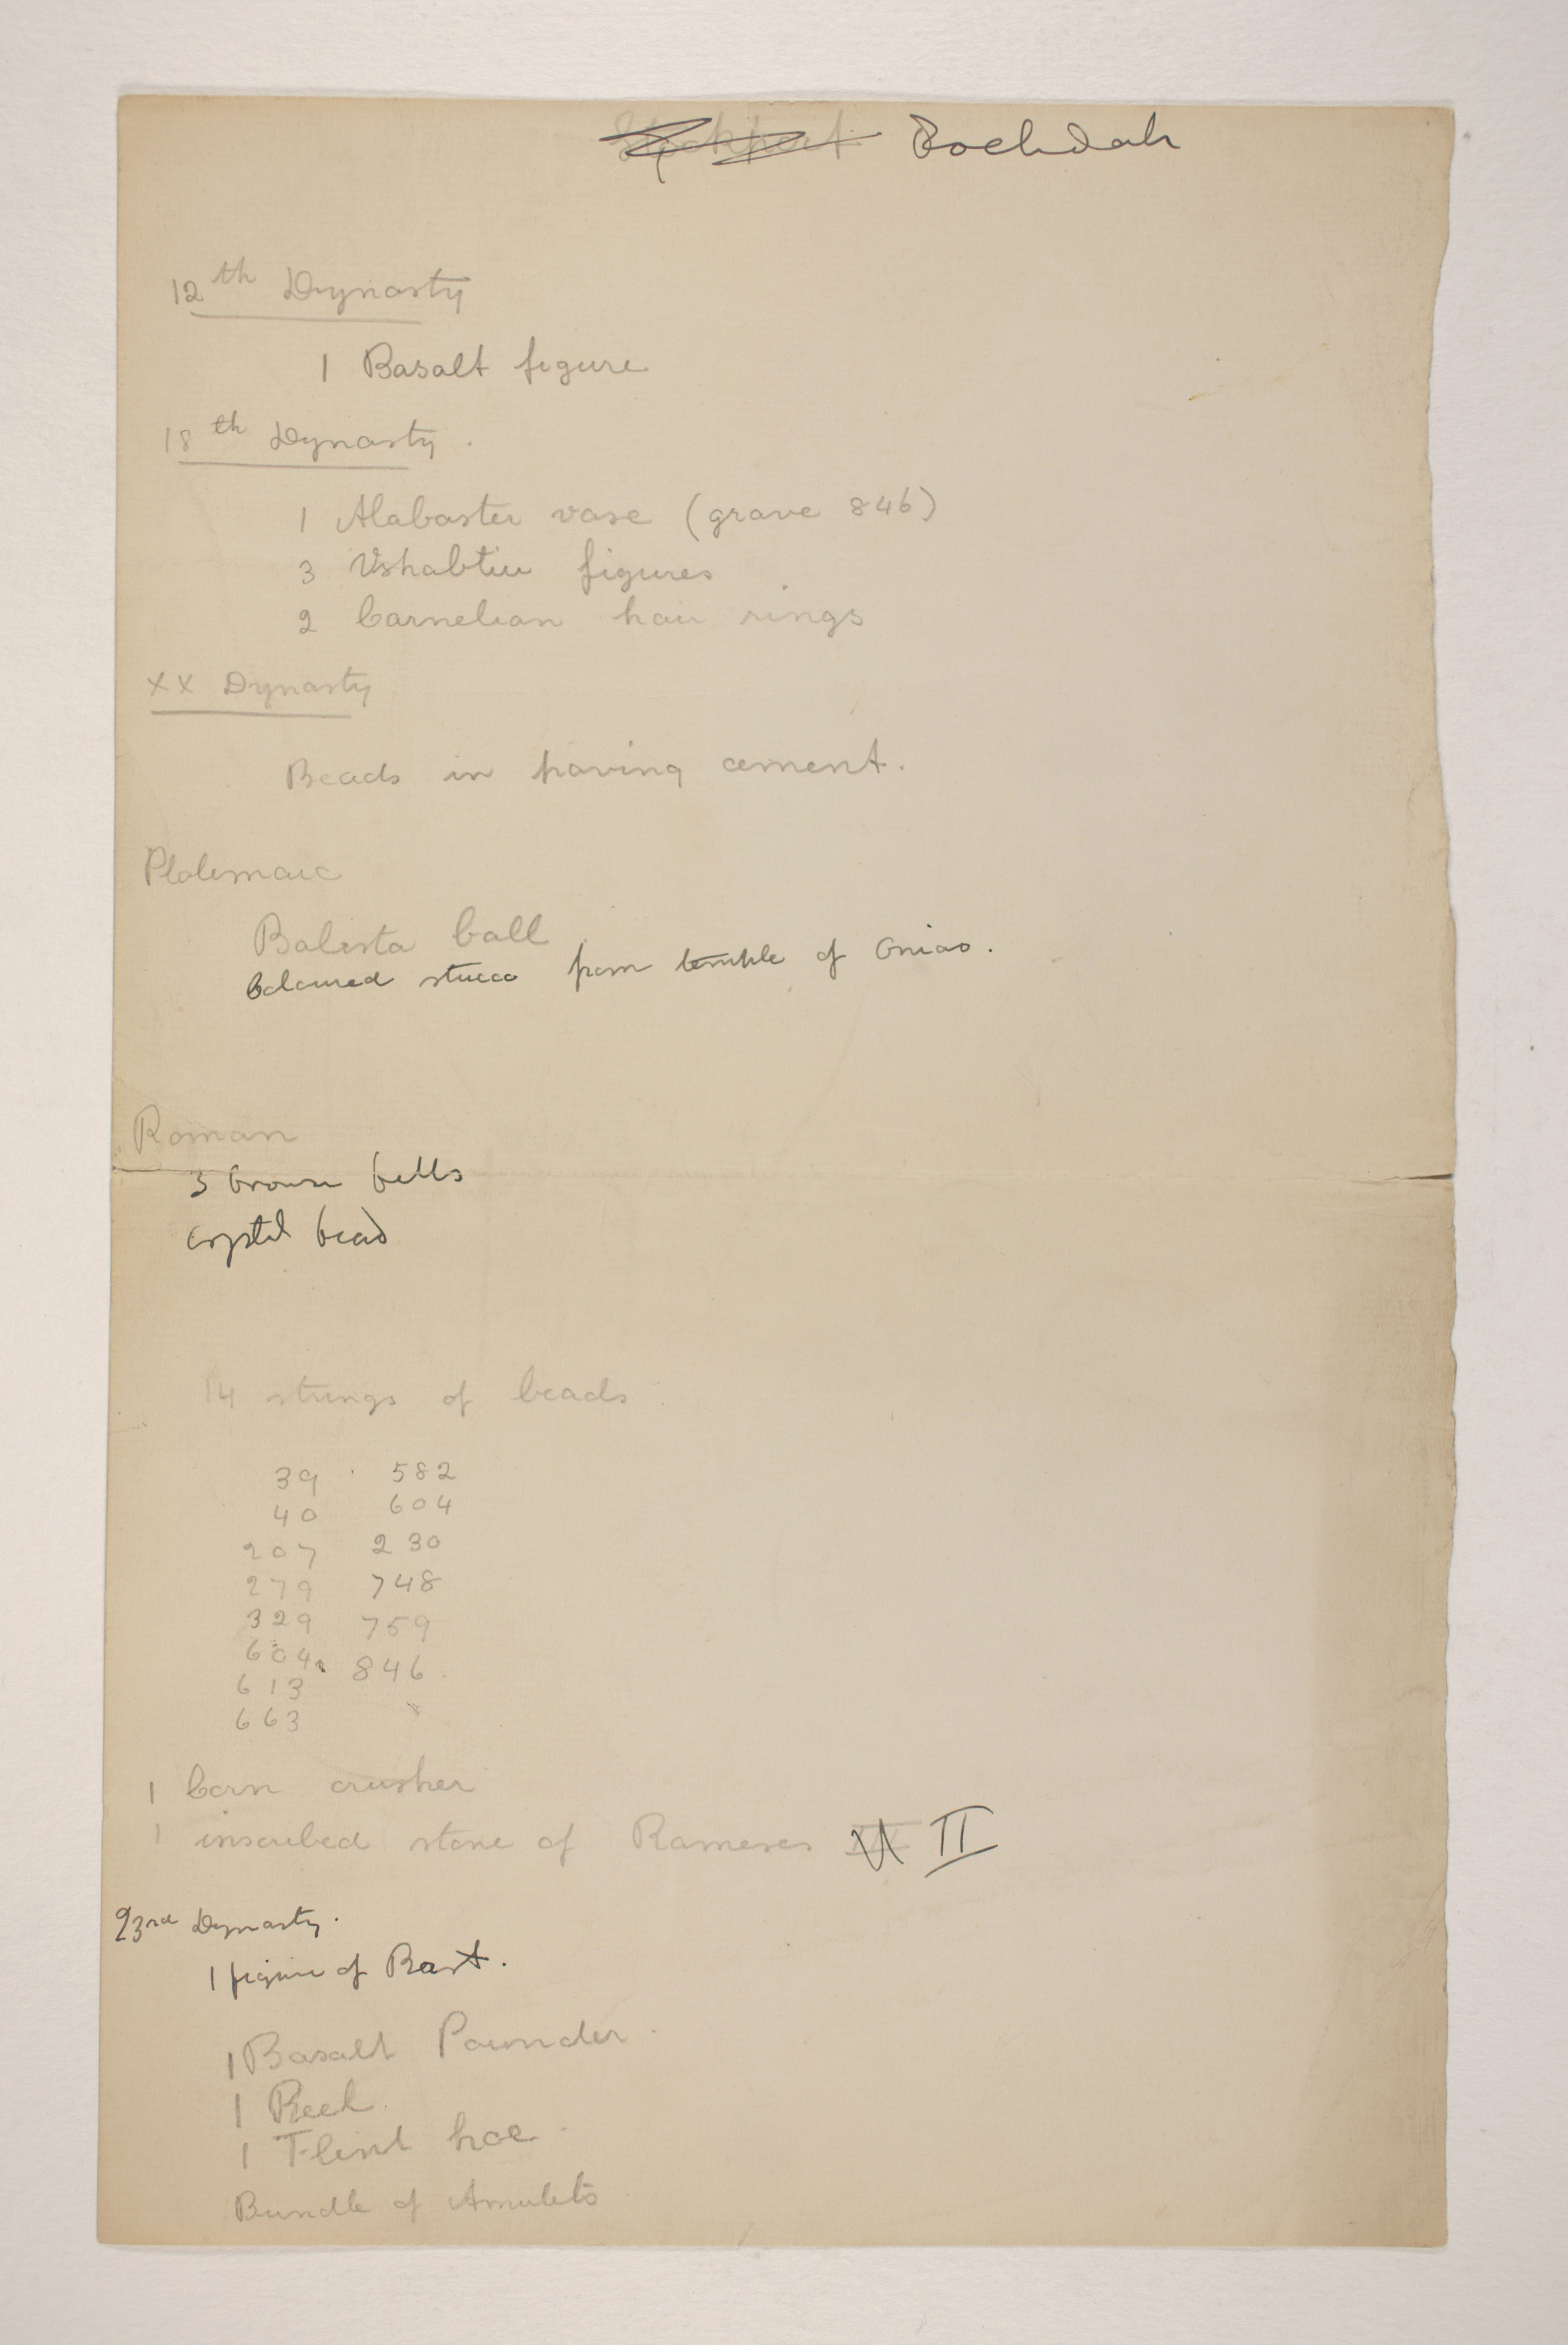 Stockport Rochdale
12th Dynasty
1 Basalt figure
18th Dynasty.
1 Alabaster vase (grave 846)
3 Ushabtiu figures
2 Carnelian hair rings
XX Dynasty
Beads in paving cement.
Ptolemaic
Balista ball
Coloured stucco from temple of Onias.
Roman
3 bronze bells
Crystal bead
14 strings of beads
39 582
40 604
207 230
279 748
329 759
604 846.
613
663
1 Corn crusher
1 inscribed stone of Rameses II
23rd Dynasty.
1 figure of Bast.
1 Basalt Pounder.
1 Reel
1 Flint hoe
Bundle of Amulets